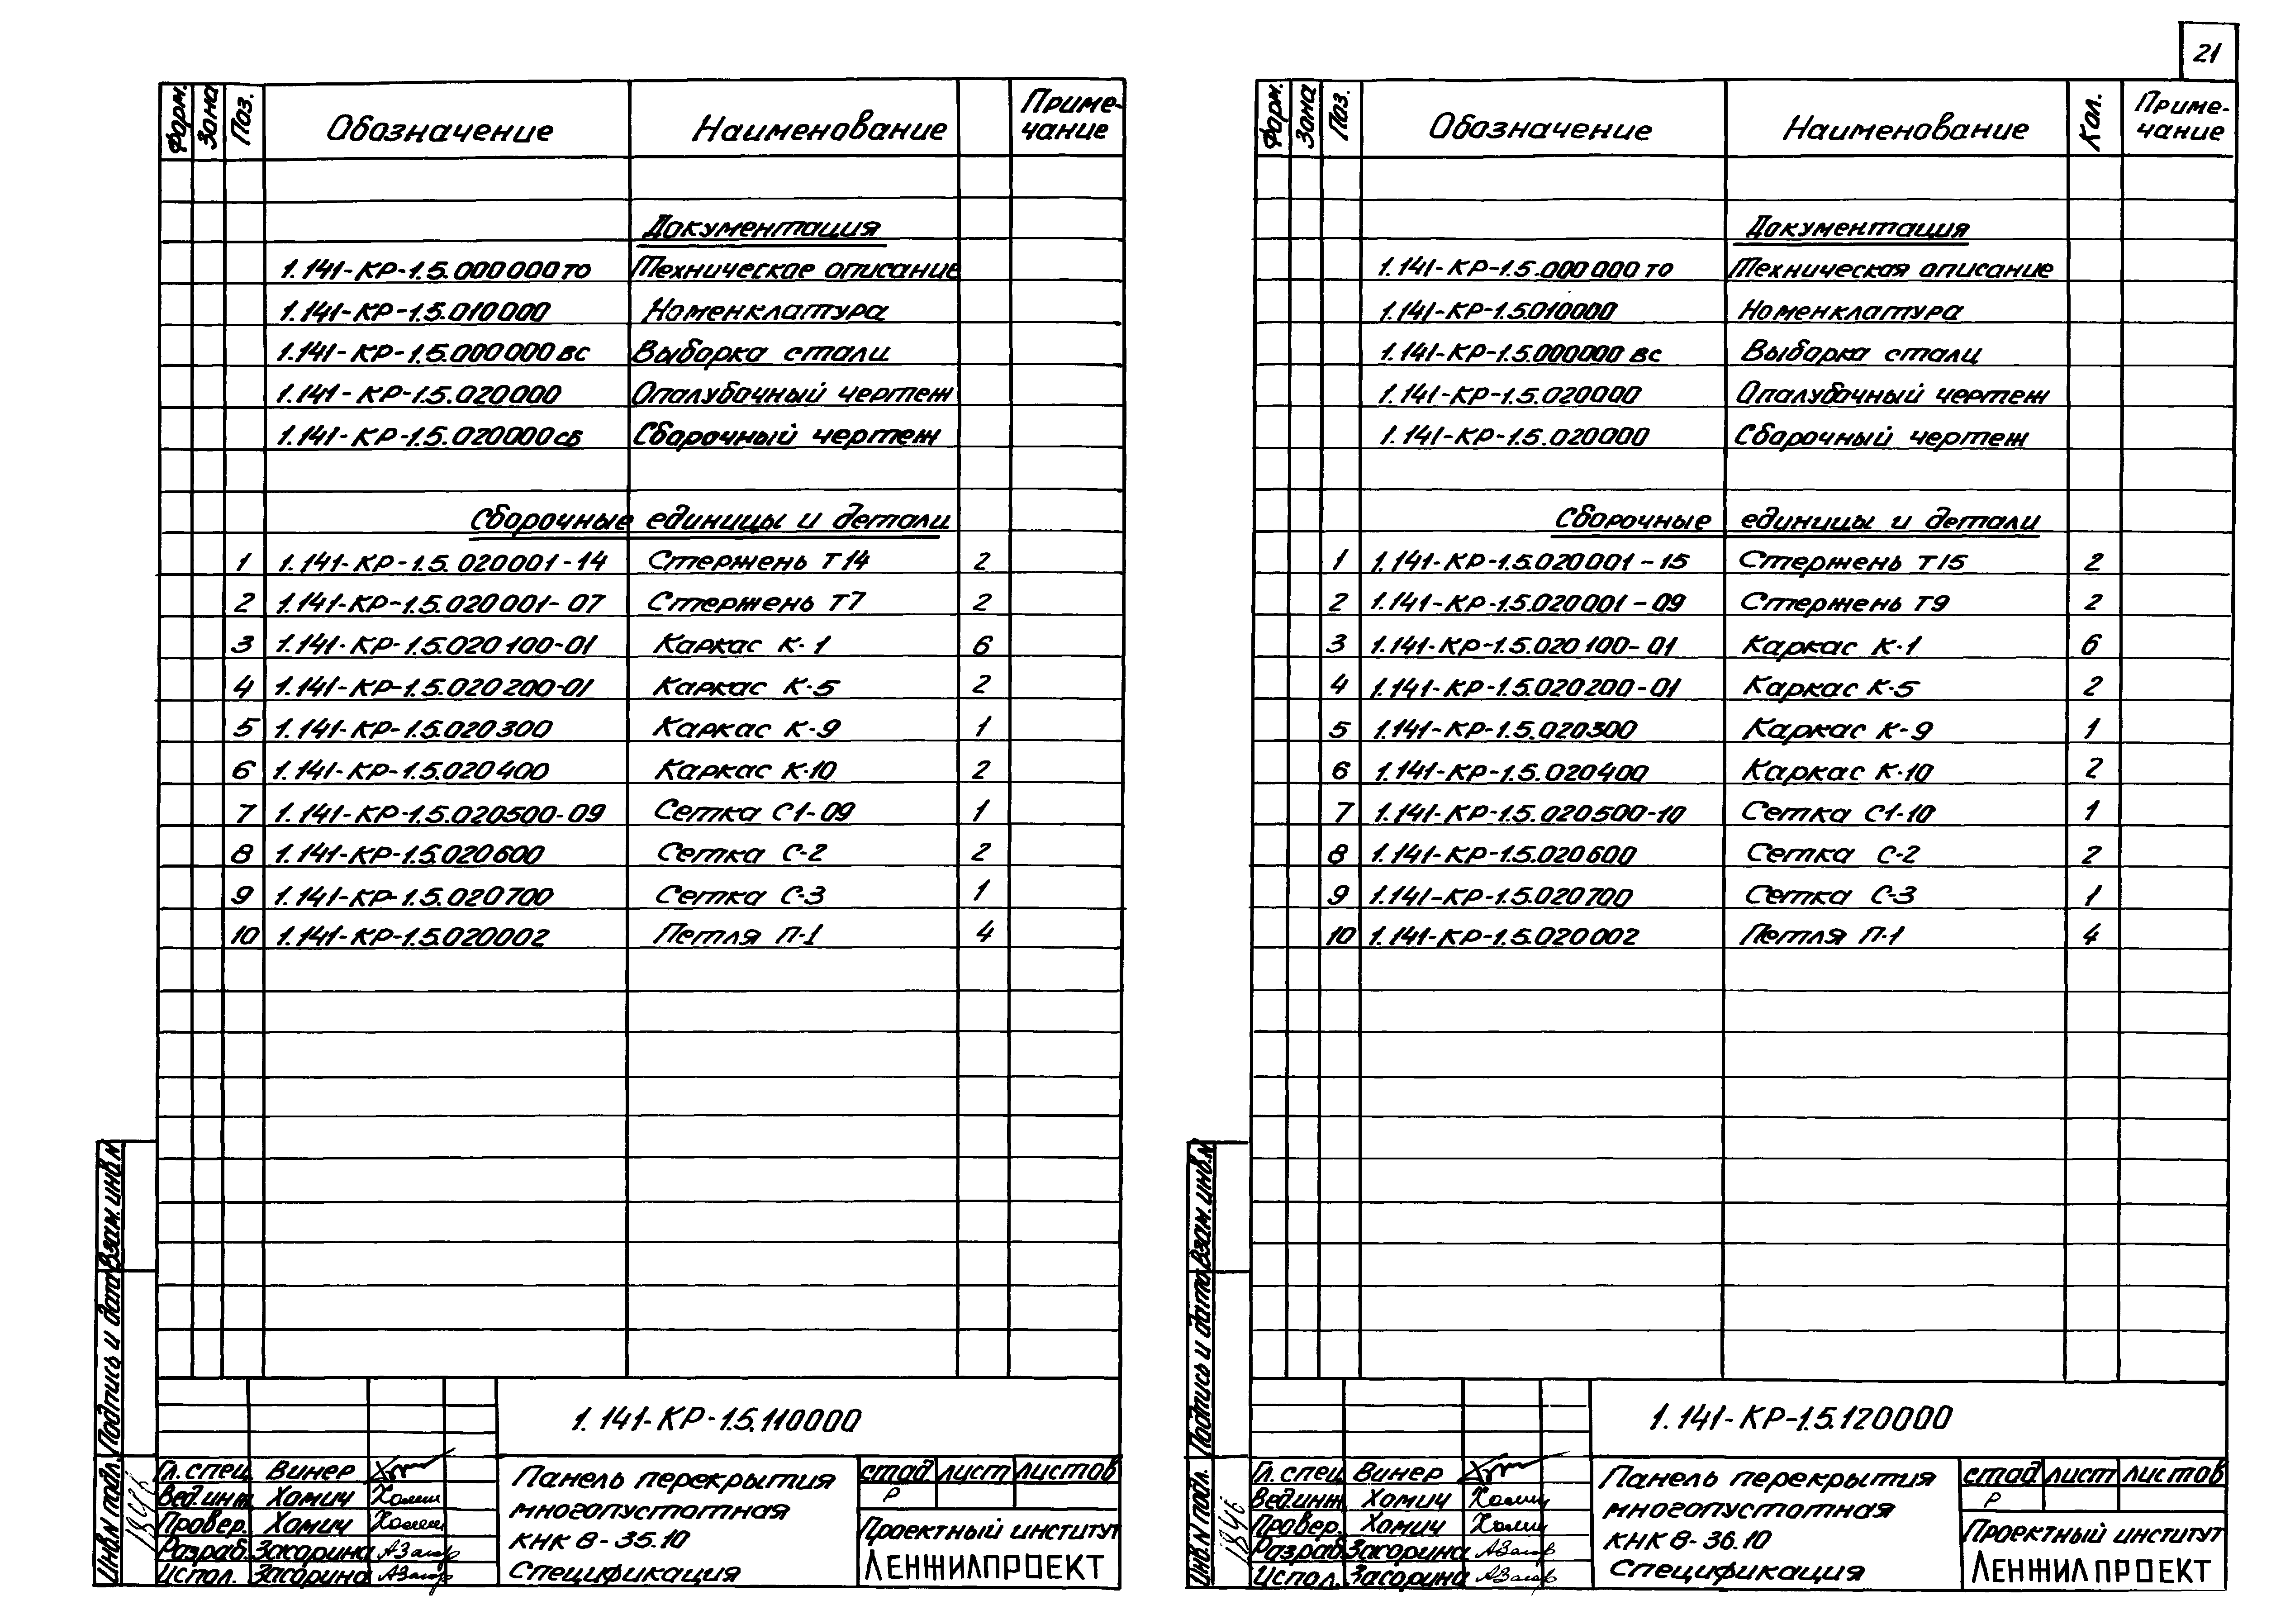 21
Форм. Зона Поз. Обозначение Наименование Приме-
чание
Документация
1.141-КР-1.5.000000ТО Техническое описание
1.141-КР-1.5.010000 Номенклатура
1.141-КР-1.5.000000ВС Выборка стали
1.141-КР-1.5.020000 Опалубочный чертеж
1.141-КР-1.5.020000СБ Сборочный чертеж
Сборочные единицы и детали
1 1.141-КР-1.5.020001-14 Стержень Т14 2
2 1.141-КР-1.5.020001-07 Стержень Т7 2
3 1.141-КР-1.5.020100-01 Каркас К-1 6
4 1.141-КР-1.5.020200-01 Каркас К-5 2
5 1.141-КР-1.5.020300 Каркас К-9 1
6 1.141-КР-1.5.020400 Каркас К-10 2
7 1.141-КР-1.5.020500-09 Сетка С1-09 1
8 1.141-КР-1.5.020600 Сетка С-2 2
9 1.141-КР-1.5.020700 Сетка С-3 1
10 1.141-КР-1.5.020002 Петля П-1 4
Взам. инв.N
Подпись и дата
Инв.N подл.
1.141-КР-1.5.110000
Гл.спец. Винер
Вед.инж. Хомич
Провер. Хомич
Разраб. Засорина
Испол. Засорина
Панель перекрытия
многопустотная
КНК 8-35.10
Спецификация
стад лист листов
Р
Проектный институт
ЛЕНЖИЛПРОЕКТ
Форм. Зона Поз. Обозначение Наименование Кол. Приме-
чание
Документация
1.141-КР-1.5.000000ТО Техническая описание
1.141-КР-1.5.010000 Номенклатура
1.141-КР-1.5.000000ВС Выборка стали
1.141-КР-1.5.020000 Опалубочный чертеж
1.141-КР-1.5.020000 Сборочный чертеж
Сборочные единицы и детали
1 1.141-КР-1.5.020001-15 Стержень Т15 2
2 1.141-КР-1.5.020001-09 Стержень Т9 2
3 1.141-КР-1.5.020100-01 Каркас К-1 6
4 1.141-КР-1.5.020200-01 Каркас К-5 2
5 1.141-КР-1.5.020300 Каркас К-9 1
6 1.141-КР-1.5.020400 Каркас К-10 2
7 1.141-КР-1.5.020500-10 Сетка С1-10 1
8 1.141-КР-1.5.020600 Сетка С-2 2
9 1.141-КР-1.5.020700 Сетка С-3 1
10 1.141-КР-1.5.020002 Петля П-1 4
Взам. инв.N
Подпись и дата
Инв.N подл.
1.141-КР-1.5.120000
Гл.спец Винер
Вед.инж. Хомич
Провер. Хомич
Разраб. Засорина
Испол. Засорина
Панель перекрытия
многопустотная
КНК 8-36.10
Спецификация
стад лист листов
Р
Проектный институт
ЛЕНЖИЛПРОЕКТ